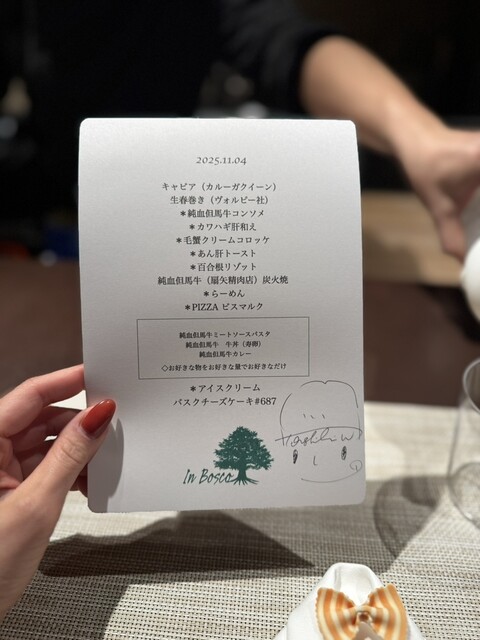 2025.11.04
キャビア（カルーガクイーン）
生春巻き（ヴォルピー社）
＊純血但馬牛コンソメ
＊カワハギ肝和え
＊毛蟹クリームコロッケ
＊あん肝トースト
＊百合根リゾット
純血但馬牛（扇矢精肉店）炭火焼
＊らーめん
＊PIZZA ビスマルク
純血但馬牛ミートソースパスタ
純血但馬牛　牛丼（寿卵）
純血但馬牛カレー
◇お好きな物をお好きな量でお好きなだけ
＊アイスクリーム
バスクチーズケーキ#687
In Bosco